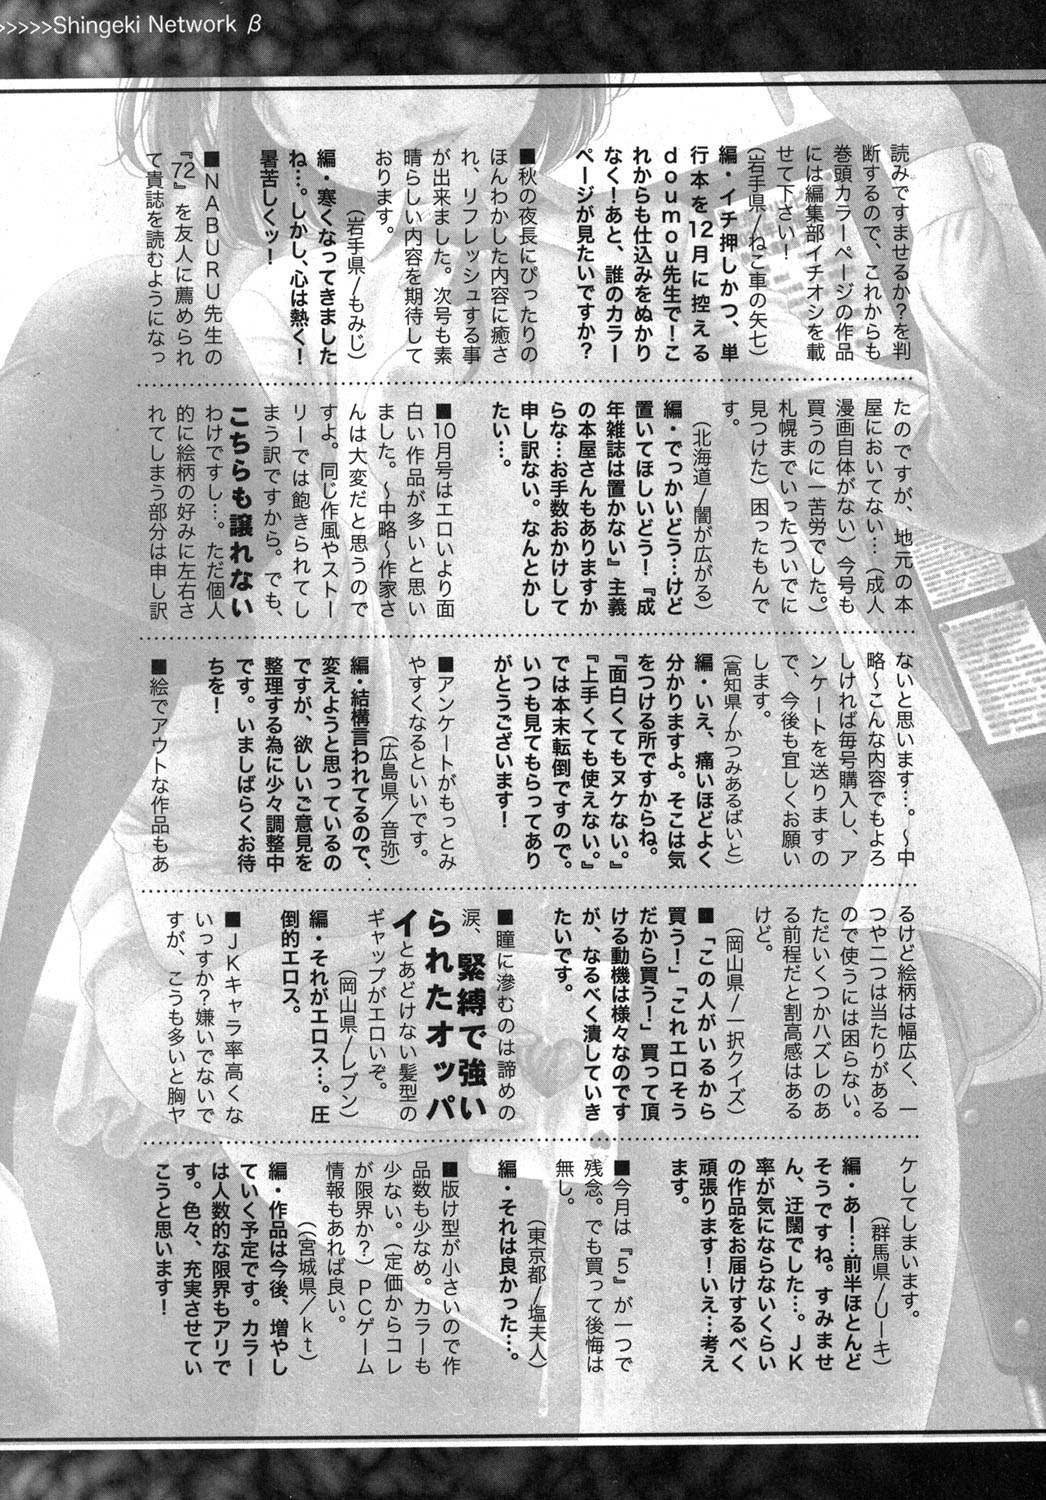 >>>>>Shingeki Network β
読みですませるか？を判
断するので、これからも
巻頭カラーページの作品
には編集部イチオシを載
せて下さい！
（岩手県/ねこ車の矢七）
編・イチ押しかつ、単
行本を12月に控える
doumou先生で！こ
れからも仕込みをぬかり
なく！あと、誰のカラー
ページが見たいですか？
■秋の夜長にぴったりの
ほんわかした内容に癒さ
れ、リフレッシュする事
が出来ました。次号も素
晴らしい内容を期待して
おります。
（岩手県/もみじ）
編・寒くなってきました
ね…。しかし、心は熱く！
暑苦しくッ！
■NABURU先生の
『72』を友人に薦められ
て貴誌を読むようになっ
たのですが、地元の本
屋においてない…（成人
漫画自体がない）今号も
買うのに一苦労でした。）
札幌までいったついでに
見つけた）困ったもんで
す。
（北海道/闇が広がる）
編・でっかいどう…けど
置いてほしいどう！『成
年雑誌は置かない』主義
の本屋さんもありますか
らな…お手数おかけして
申し訳ない。なんとかし
たい…。
■10月号はエロいより面
白い作品が多いと思い
ました。～中略～作家さ
んは大変だと思うので
すよ。同じ作風やストー
リーでは飽きられてし
まう訳ですから。でも、
こちらも譲れない
わけですし…。ただ個人
的に絵柄の好みに左右さ
れてしまう部分は申し訳
ないと思います…。～中
略～こんな内容でもよろ
しければ毎号購入し、ア
ンケートを送りますの
で、今後も宜しくお願い
します。
（高知県/かつみあるぱいと）
編・いえ、痛いほどよく
分かりますよ。そこは気
をつける所ですからね。
『面白くてもヌケない。』
『上手くても使えない。』
では本末転倒ですので。
いつも見てもらってあり
がとうございます！
■アンケートがもっとみ
やすくなるといいです。
（広島県/音弥）
編・結構言われてるので、
変えようと思っているの
ですが、欲しいご意見を
整理する為に少々調整中
です。いましばらくお待
ちを！
■絵でアウトな作品もあ
るけど絵柄は幅広く、一
つや二つは当たりがある
ので使うには困らない。
ただいくつかハズレのあ
る前程だと割高感はある
けど。
（岡山県/一択クイズ）
■「この人がいるから
買う！」「これエロそう
だから買う！」買って頂
ける動機は様々なのです
が、なるべく潰していき
たいです。
■瞳に滲むのは諦めの
涙、緊縛で強い
られたオッパ
イとあどけない髪型の
ギャップがエロいぞ。
（岡山県/レブン）
編・それがエロス…。圧
倒的エロス。
■JKキャラ率高くな
いっすか？嫌いでないで
すが、こうも多いと胸ヤ
ケしてしまいます。
（群馬県/Uーキ）
編・あー…前半ほとんど
そうですね。すみませ
ん、迂闊でした…。JK
率が気にならないくらい
の作品をお届けするべく
頑張ります！いえ…考え
ます。
■今月は『5』が一つで
残念。でも買って後悔は
無し。
（東京都/塩夫人）
編・それは良かった…。
■版け型が小さいので作
品数も少なめ。カラーも
少ない。（定価からコレ
が限界か？）PCゲーム
情報もあれば良い。
（宮城県/kt）
編・作品は今後、増やし
ていく予定です。カラー
は人数的な限界もアリで
す。色々、充実させてい
こうと思います！